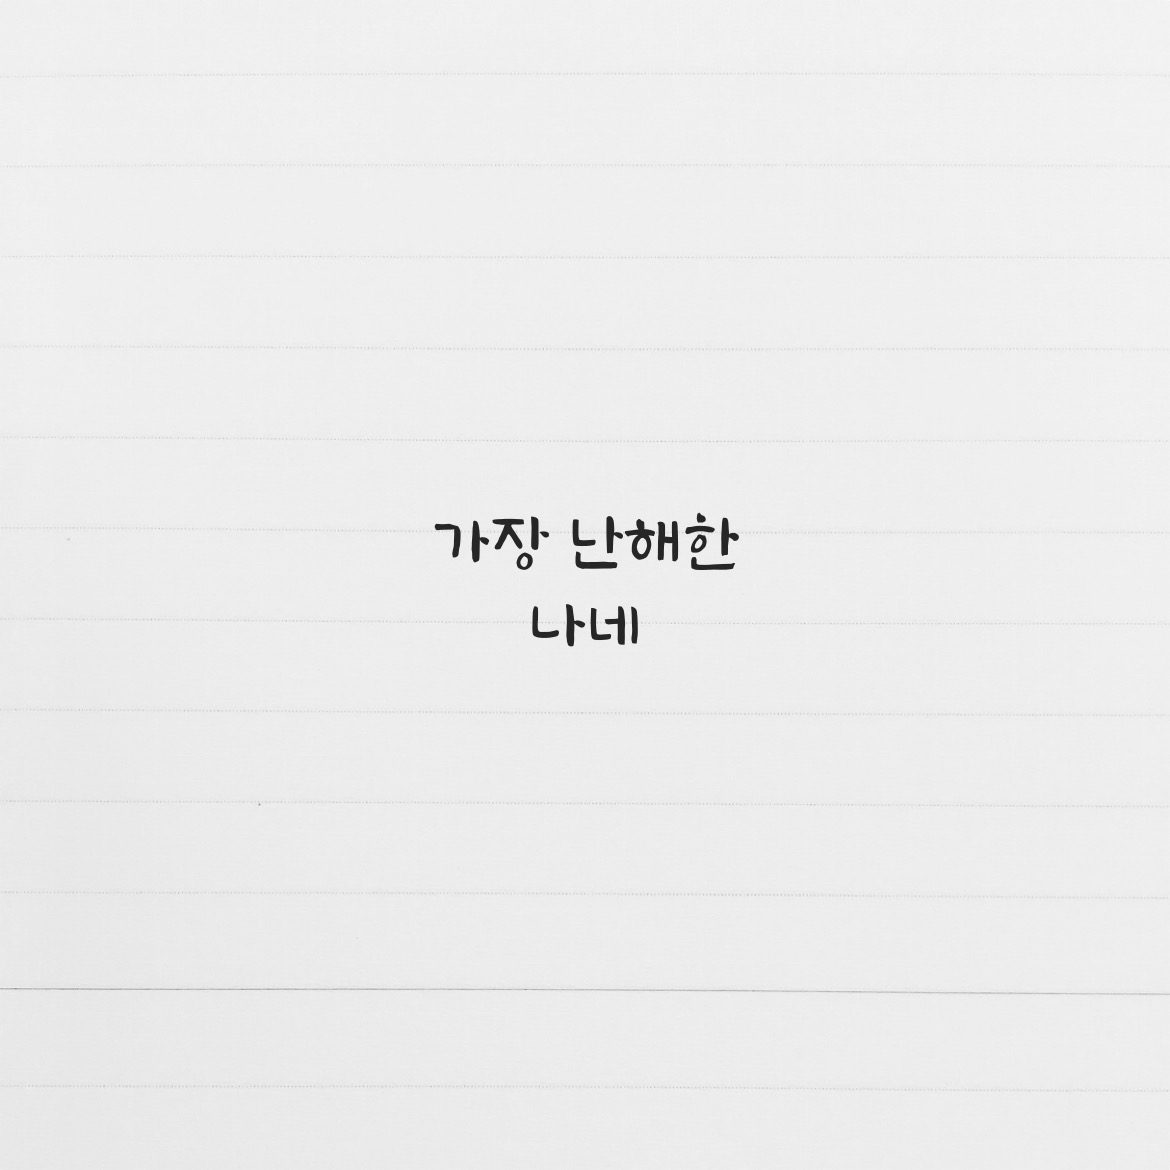 가장 난해한
나네